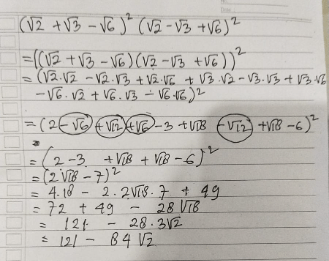 (√2 + √3 - √6)² (√2 - √3 + √6)²
= ((√2 + √3 - √6)(√2 - √3 + √6))²
= (√2.√2 - √2.√3 + √2.√6 + √3.√2 - √3.√3 + √3.√6
- √6.√2 + √6.√3 - √6.√6)²
= (2 - √6 + √12 + √6 - 3 + √18 - √12 + √18 - 6)²
= (2 - 3 + √18 + √18 - 6)²
= (2√18 - 7)²
= 4.18 - 2.2√18.7 + 49
= 72 + 49 - 28√18
= 121 - 28.3√2
= 121 - 84√2